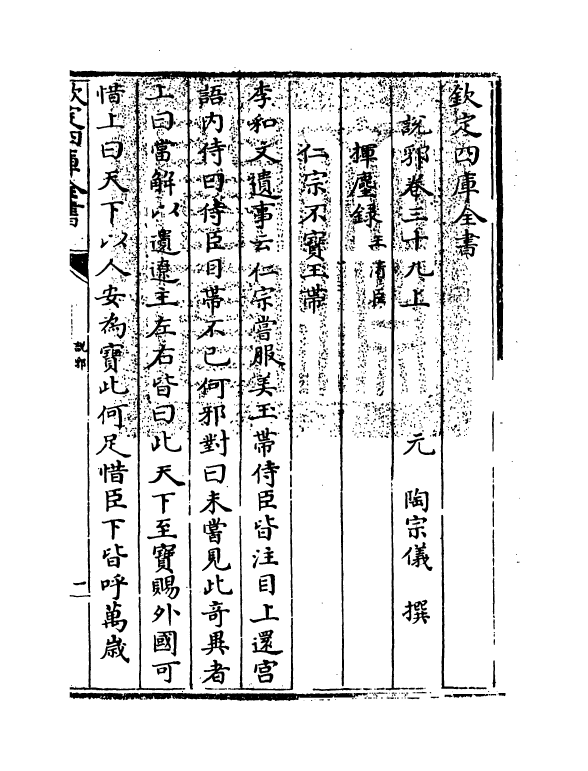 欽定四庫全書
說郛卷三十九上 元 陶宗儀 撰
揮麈錄 王清臣
仁宗不寶玉帶
李和文遺事云仁宗嘗服美玉帶侍臣皆注目上還宮
語内侍曰侍臣目帶不已何邪對曰未嘗見此奇異者
上曰當解以遺遼主左右皆曰此天下至寶賜外國可
惜上曰天下以人安為寶此何足惜臣下皆呼萬歲
欽定四庫全書
說郛
二